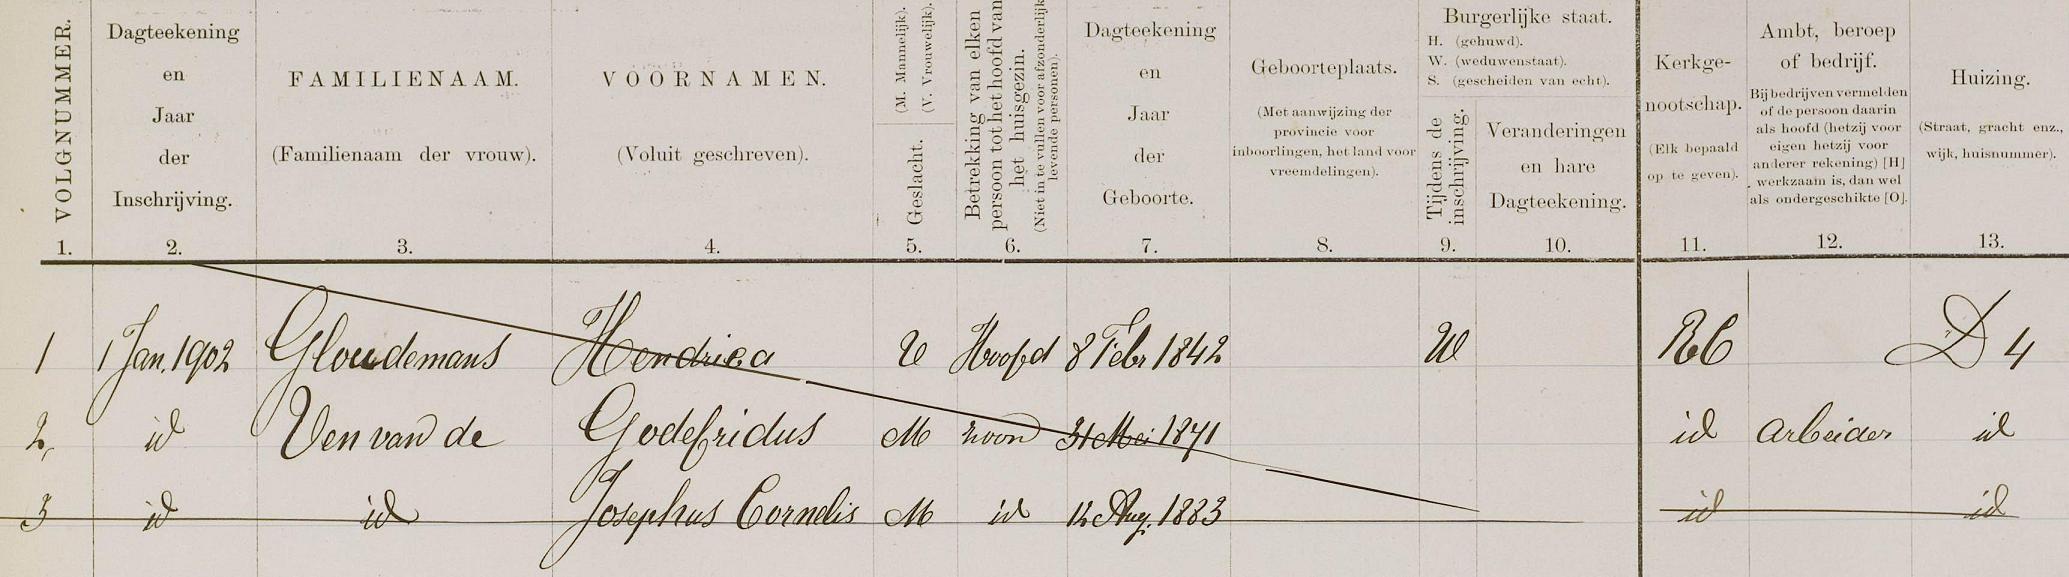 VOLGNUMMER.
Dagteekening en Jaar der Inschrijving.
FAMILIENAAM.
(Familienaam der vrouw).
VOORNAMEN.
(Voluit geschreven).
Geslacht. (M. Mannelijk). (V. Vrouwelijk).
Betrekking van elken persoon tot het hoofd van het huisgezin. (Niet in te vullen voor afzonderlijk levende personen).
Dagteekening en Jaar der Geboorte.
Geboorteplaats.
(Met aanwijzing der provincie voor inboorlingen, het land voor vreemdelingen).
Burgerlijke staat.
H. (gehuwd).
W. (weduwenstaat).
S. (gescheiden van echt).
Tijdens de inschrijving.
Veranderingen en hare Dagteekening.
Kerkgenootschap.
(Elk bepaald op te geven).
Ambt, beroep of bedrijf.
Bij bedrijven vermelden of de persoon daarin als hoofd (hetzij voor eigen hetzij voor anderer rekening) [H] werkzaam is, dan wel als ondergeschikte [O].
Huizing.
(Straat, gracht enz., wijk, huisnummer).
1. 2. 3. 4. 5. 6. 7. 8. 9. 10. 11. 12. 13.
1 1 Jan. 1902 Gloudemans Hendrica V Hoofd 8 Febr 1842 W RC D 4
2, id Ven van de Godefridus M zoon 31 Mei 1871 id Arbeider id
3 id id Josephus Cornelis M id 12 Aug. 1883 id id